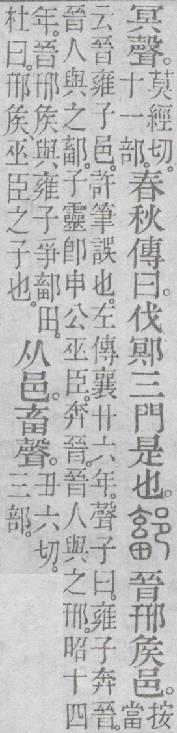 冥聲。莫經切。十一部。春秋傳曰。伐鄍三門是也。鄐晉邢矦邑。按當
云晉雍子邑。許筆誤也。左傳襄廿六年。聲子曰。雍子奔晉。
晉人與之鄐。子靈卽申公巫臣。奔晉。晉人與之邢。昭十四
年。晉邢矦與雍子爭鄐田。杜曰。邢矦巫臣之子也。从邑。畜聲。丑六切。三部。